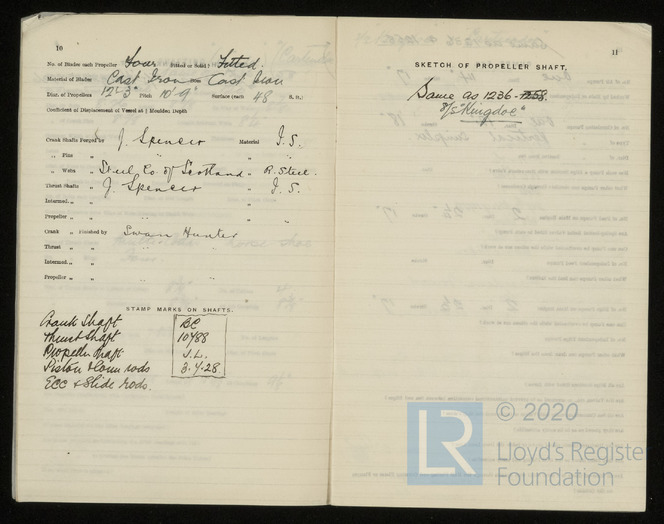 10
No. of Blades each Propeller Four Fitted or Solid? Fitted.
Material of Blades Cast Iron Boss Cast Iron
Diam. of Propellers 12'-3" Pitch 10'-9" Surface (each 48 S. ft.)
Coefficient of Displacement of Vessel at ¾ Moulded Depth
Crank Shafts Forged by J. Spencer Material I.S.
„ Pins „ „
„ Webs „ Steel Co. of Scotland „ R. Steel.
Thrust Shafts „ J. Spencer „ I.S.
Intermed. „ „ „
Propeller „ „ „
Crank „ Finished by Swan Hunter
Thrust „ „
Intermed. „ „
Propeller „ „
STAMP MARKS ON SHAFTS.
Crank Shaft
Thrust Shaft
Propeller Shaft
Piston & Conn rods
Ecc & Slide rods.
BC
10488
J.L.
3.4.28
11
SKETCH OF PROPELLER SHAFT.
Same as 1236.
S/S "Kingdoc"
LR
© 2020
Lloyd's Register
Foundation